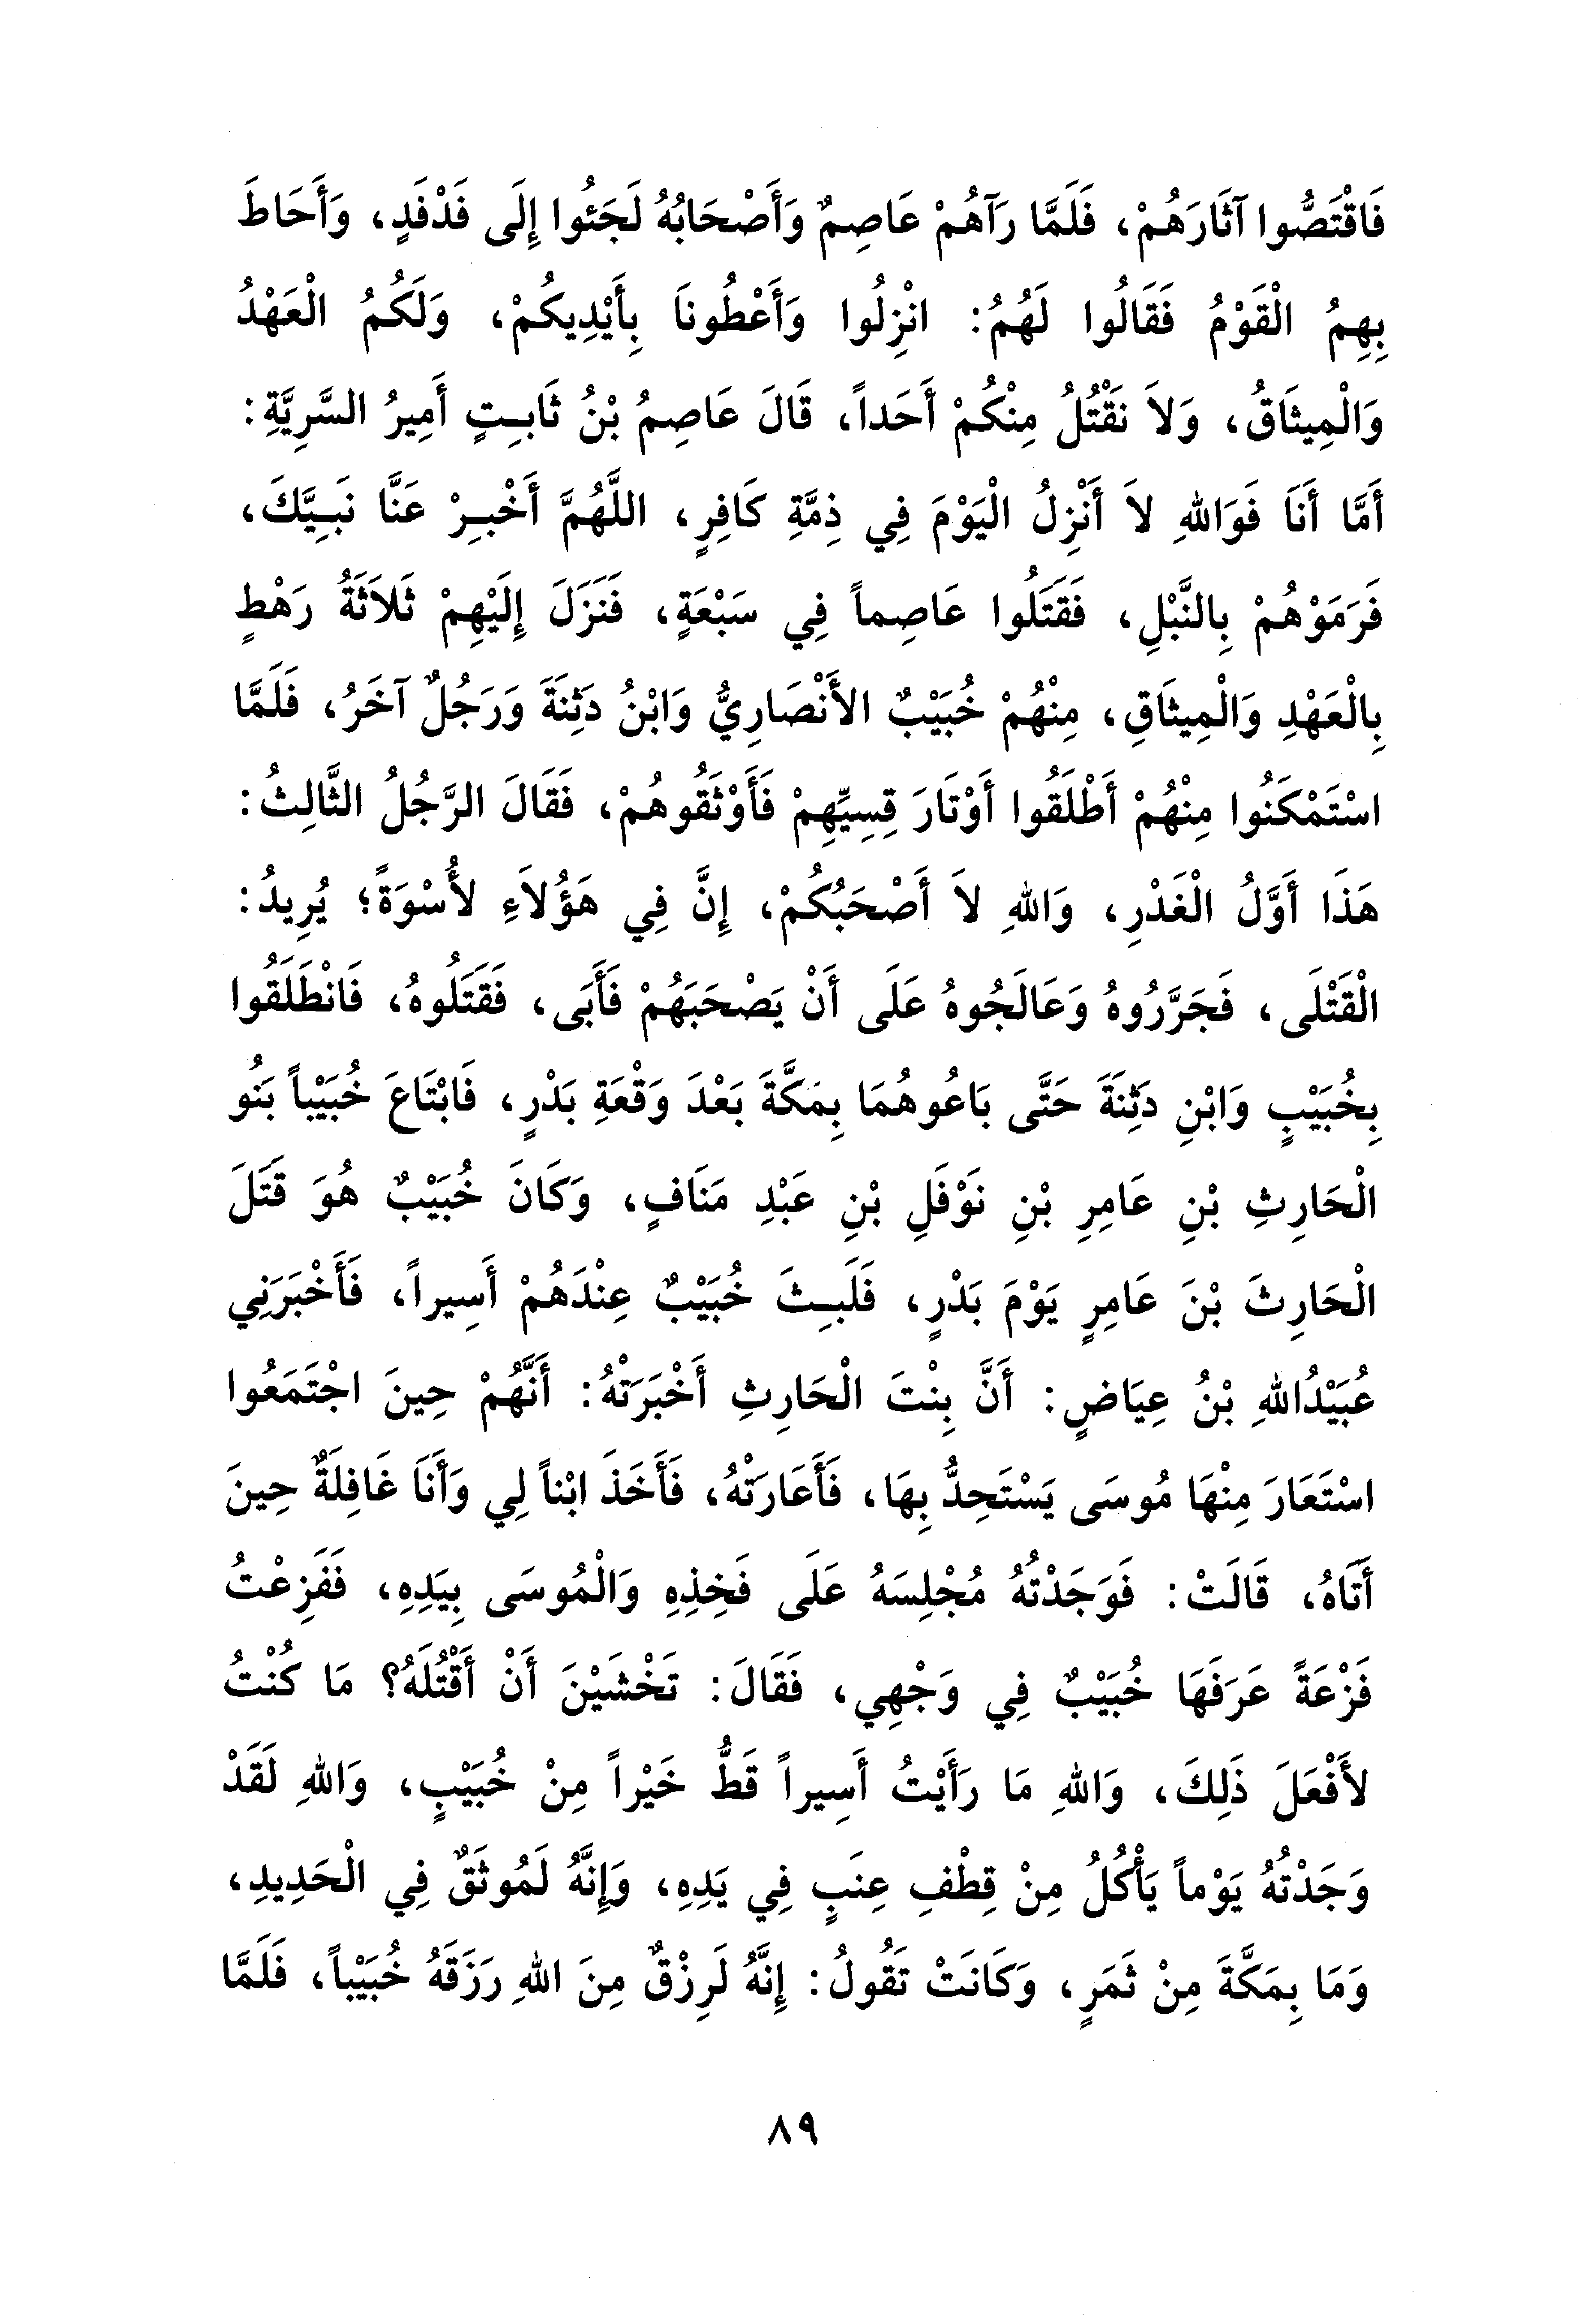 فَاقْتَصُّوا آثَارَهُمْ، فَلَمَّا رَآهُمْ عَاصِمٌ وَأَصْحَابُهُ لَجَئُوا إِلَى فَدْفَدٍ، وَأَحَاطَ
بِهِمُ الْقَوْمُ فَقَالُوا لَهُمُ: انْزِلُوا وَأَعْطُونَا بِأَيْدِيكُمْ، وَلَكُمُ الْعَهْدُ
وَالْمِيثَاقُ، وَلاَ نَقْتُلُ مِنْكُمْ أَحَداً، قَالَ عَاصِمُ بْنُ ثَابِتٍ أَمِيرُ السَّرِيَّةِ:
أَمَّا أَنَا فَوَاللهِ لاَ أَنْزِلُ الْيَوْمَ فِي ذِمَّةِ كَافِرٍ، اللَّهُمَّ أَخْبِرْ عَنَّا نَبِيَّكَ،
فَرَمَوْهُمْ بِالنَّبْلِ، فَقَتَلُوا عَاصِماً فِي سَبْعَةٍ، فَنَزَلَ إِلَيْهِمْ ثَلاَثَةُ رَهْطٍ
بِالْعَهْدِ وَالْمِيثَاقِ، مِنْهُمْ خُبَيْبٌ الأَنْصَارِيُّ وَابْنُ دَثِنَةَ وَرَجُلٌ آخَرُ، فَلَمَّا
اسْتَمْكَنُوا مِنْهُمْ أَطْلَقُوا أَوْتَارَ قِسِيِّهِمْ فَأَوْثَقُوهُمْ، فَقَالَ الرَّجُلُ الثَّالِثُ:
هَذَا أَوَّلُ الْغَدْرِ، وَاللهِ لاَ أَصْحَبُكُمْ، إِنَّ فِي هَؤُلاَءِ لأُسْوَةً؛ يُرِيدُ:
الْقَتْلَى، فَجَرَّرُوهُ وَعَالَجُوهُ عَلَى أَنْ يَصْحَبَهُمْ فَأَبَى، فَقَتَلُوهُ، فَانْطَلَقُوا
بِخُبَيْبٍ وَابْنِ دَثِنَةَ حَتَّى بَاعُوهُمَا بِمَكَّةَ بَعْدَ وَقْعَةِ بَدْرٍ، فَابْتَاعَ خُبَيْباً بَنُو
الْحَارِثِ بْنِ عَامِرِ بْنِ نَوْفَلِ بْنِ عَبْدِ مَنَافٍ، وَكَانَ خُبَيْبٌ هُوَ قَتَلَ
الْحَارِثَ بْنَ عَامِرٍ يَوْمَ بَدْرٍ، فَلَبِثَ خُبَيْبٌ عِنْدَهُمْ أَسِيراً، فَأَخْبَرَنِي
عُبَيْدُاللهِ بْنُ عِيَاضٍ: أَنَّ بِنْتَ الْحَارِثِ أَخْبَرَتْهُ: أَنَّهُمْ حِينَ اجْتَمَعُوا
اسْتَعَارَ مِنْهَا مُوسَى يَسْتَحِدُّ بِهَا، فَأَعَارَتْهُ، فَأَخَذَ ابْناً لِي وَأَنَا غَافِلَةٌ حِينَ
أَتَاهُ، قَالَتْ: فَوَجَدْتُهُ مُجْلِسَهُ عَلَى فَخِذِهِ وَالْمُوسَى بِيَدِهِ، فَفَزِعْتُ
فَزْعَةً عَرَفَهَا خُبَيْبٌ فِي وَجْهِي، فَقَالَ: تَخْشَيْنَ أَنْ أَقْتُلَهُ؟ مَا كُنْتُ
لأَفْعَلَ ذَلِكَ، وَاللهِ مَا رَأَيْتُ أَسِيراً قَطُّ خَيْراً مِنْ خُبَيْبٍ، وَاللهِ لَقَدْ
وَجَدْتُهُ يَوْماً يَأْكُلُ مِنْ قِطْفِ عِنَبٍ فِي يَدِهِ، وَإِنَّهُ لَمُوثَقٌ فِي الْحَدِيدِ،
وَمَا بِمَكَّةَ مِنْ ثَمَرٍ، وَكَانَتْ تَقُولُ: إِنَّهُ لَرِزْقٌ مِنَ اللهِ رَزَقَهُ خُبَيْباً، فَلَمَّا
٨٩